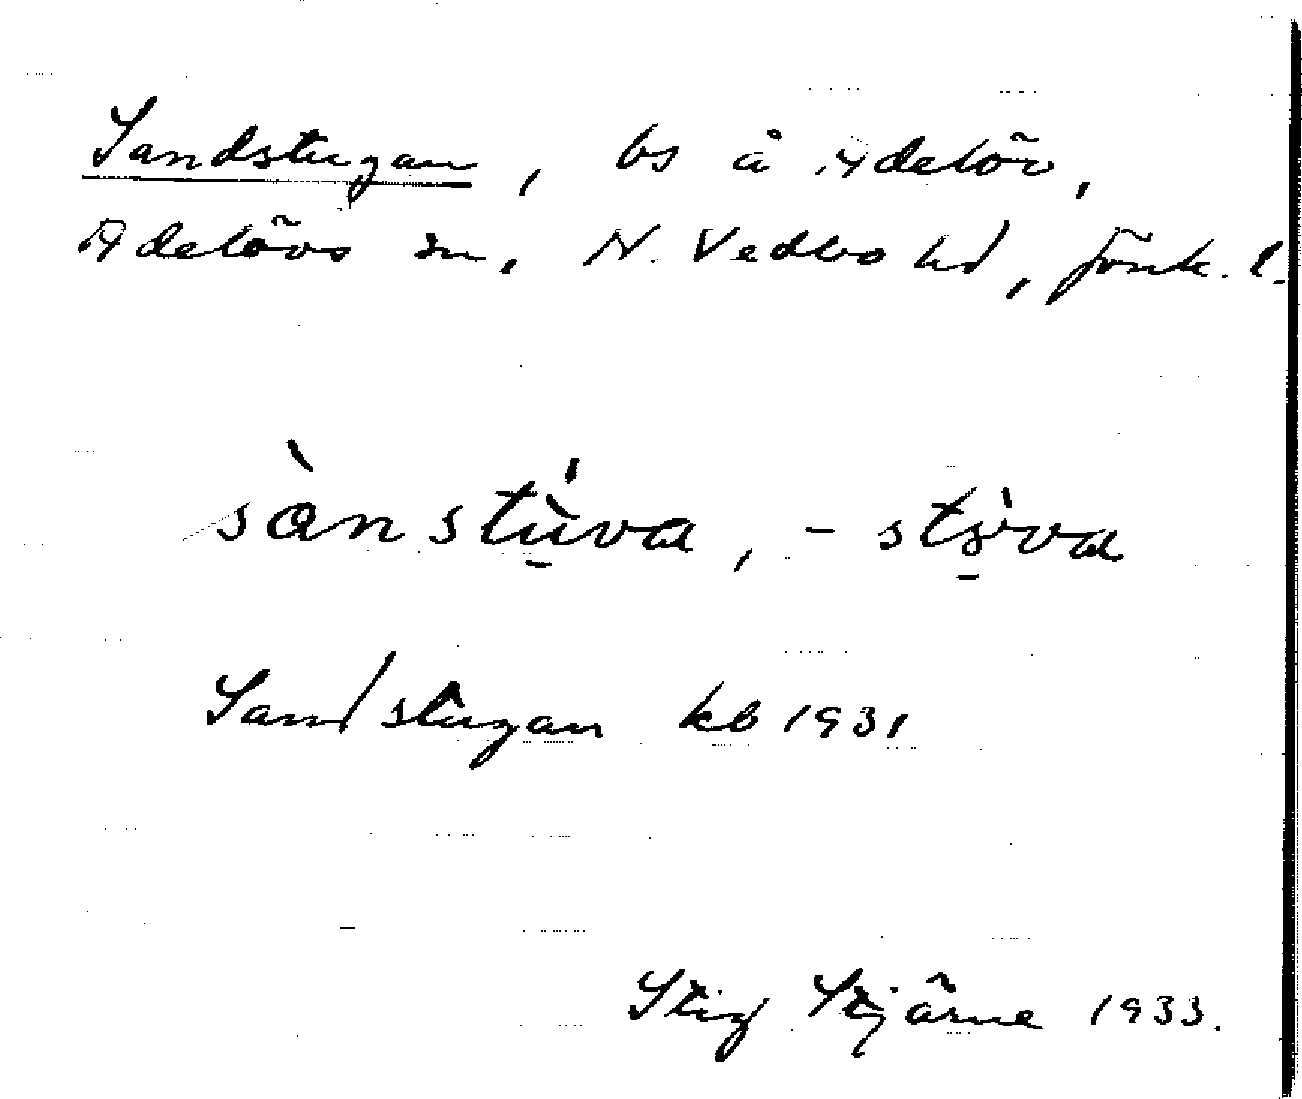 Sandstugan, bs å Adelöv,
Adelövs sn, N. Vedbo hd, Jönk. l.
sànstùva, -stɵ̀va
Sandstugan kb 1931
Stig Stjärne 1933.